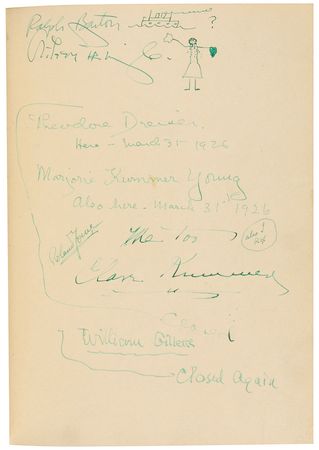 Ralph Barton
?
Theodore Dreiser.
Here - March 31st 1926
Marjorie Kummer Young
Also here - March 31st 1926
Roland Young
Me too
also!
Clare Kummer
Closed
William Gillette
Closed Again